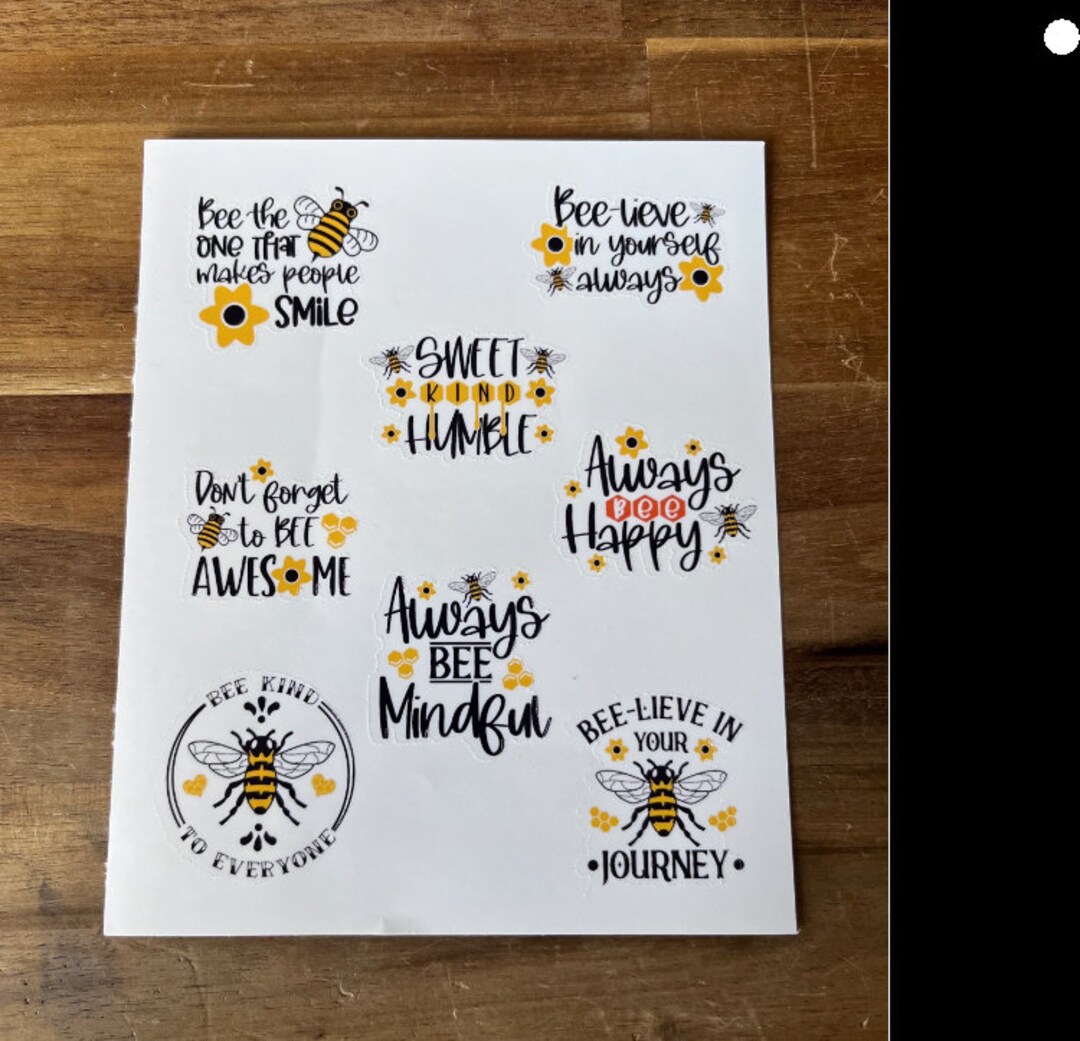 Bee the
ONE THAT
makes people
SMiLe
Bee-lieve
in yourself
always
SWEET
KIND
HUMBLE
Don't forget
to BEE
AWESOME
Always
Bee
Happy
Always
BEE
Mindful
BEE KIND
TO EVERYONE
BEE-LIEVE IN
YOUR
•JOURNEY•